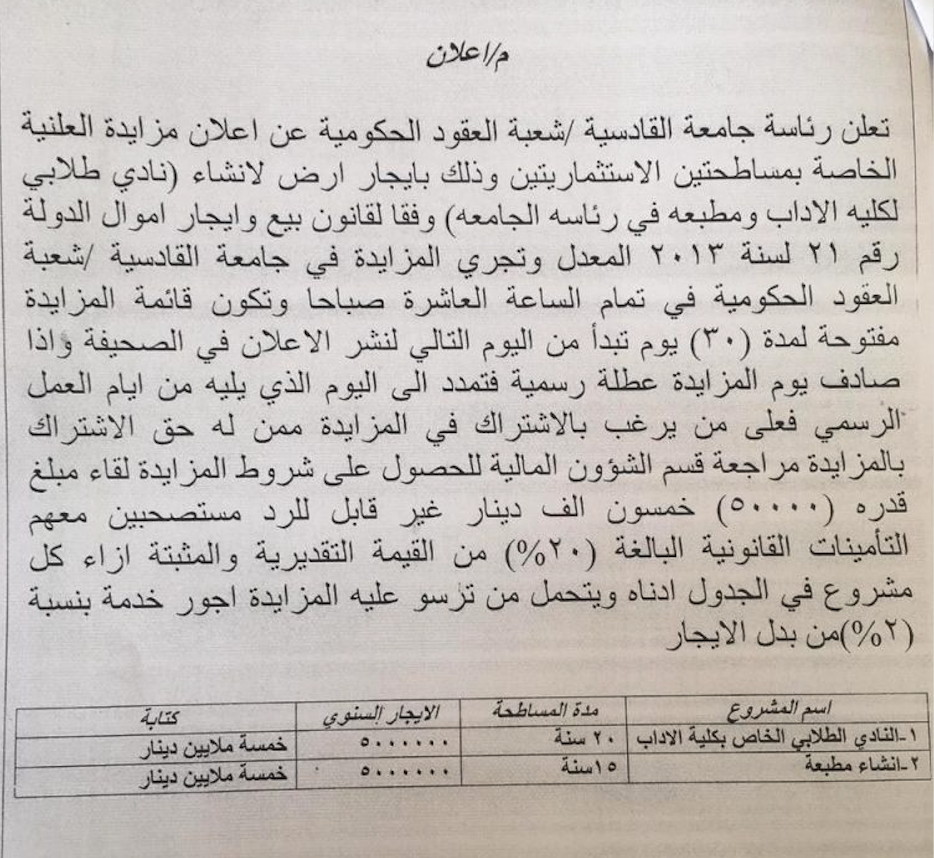 م/اعلان
تعلن رئاسة جامعة القادسية /شعبة العقود الحكومية عن اعلان مزايدة العلنية
الخاصة بمساطحتين الاستثماريتين وذلك بايجار ارض لانشاء (نادي طلابي
لكليه الاداب ومطبعه في رئاسه الجامعه) وفقا لقانون بيع وايجار اموال الدولة
رقم ٢١ لسنة ٢٠١٣ المعدل وتجري المزايدة في جامعة القادسية /شعبة
العقود الحكومية في تمام الساعة العاشرة صباحا وتكون قائمة المزايدة
مفتوحة لمدة (٣٠) يوم تبدأ من اليوم التالي لنشر الاعلان في الصحيفة واذا
صادف يوم المزايدة عطلة رسمية فتمدد الى اليوم الذي يليه من ايام العمل
الرسمي فعلى من يرغب بالاشتراك في المزايدة ممن له حق الاشتراك
بالمزايدة مراجعة قسم الشؤون المالية للحصول على شروط المزايدة لقاء مبلغ
قدره (٥٠٠٠٠) خمسون الف دينار غير قابل للرد مستصحبين معهم
التأمينات القانونية البالغة (٢٠%) من القيمة التقديرية والمثبتة ازاء كل
مشروع في الجدول ادناه ويتحمل من ترسو عليه المزايدة اجور خدمة بنسبة
(٢%)من بدل الايجار
اسم المشروع مدة المساطحة الايجار السنوي كتابة
١-النادي الطلابي الخاص بكلية الاداب ٢٠ سنة ٥٠٠٠٠٠٠ خمسة ملايين دينار
٢-انشاء مطبعة ١٥سنة ٥٠٠٠٠٠٠ خمسة ملايين دينار